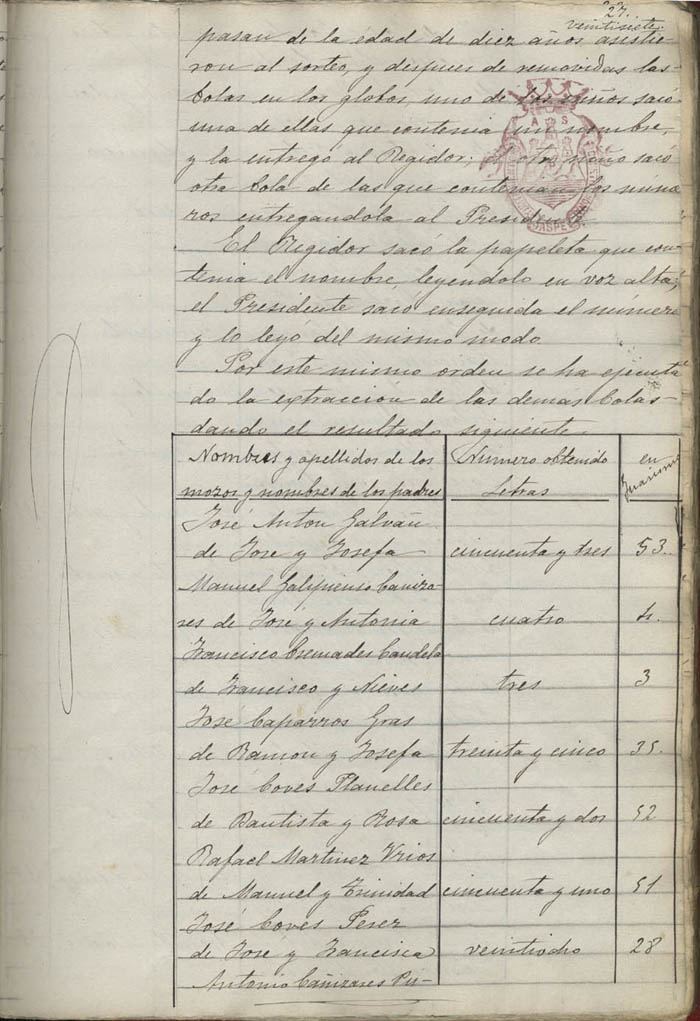 27.
veintisiete.
pasan de la edad de diez años asistie
ron al sorteo, y despues de removidas las
bolas en los globos, uno de los niños sacó
una de ellas que contenia un nombre,
y la entregó al Regidor; el otro niño sacó
otra bola de las que contenian los núme
ros entregandola al Presidente
El Regidor sacó la papeleta que con
tenia el nombre, leyendolo en voz alta;
el Presidente sacó enseguida el número
y lo leyó del mismo modo
Por este mismo orden se ha ejecuta
do la extraccion de las demas bolas
dando el resultado siguiente
Nombres y apellidos de los
mozos y nombres de los padres
Número obtenido
Letras
en
Guarismo
José Anton Galvañ
de José y Josefa cincuenta y tres 53.
Manuel Galipienso Cañiza
res de José y Antonia cuatro 4.
Francisco Cremades Candela
de Francisco y Nieves tres 3
José Caparros Gras
de Ramon y Josefa treinta y cinco 35.
José Coves Planelles
de Bautista y Rosa cincuenta y dos 52
Rafael Martinez Vrios
de Manuel y Trinidad cincuenta y uno 51
José Coves Perez
de José y Francisca veintiocho 28
Antonio Cañizares Pi-